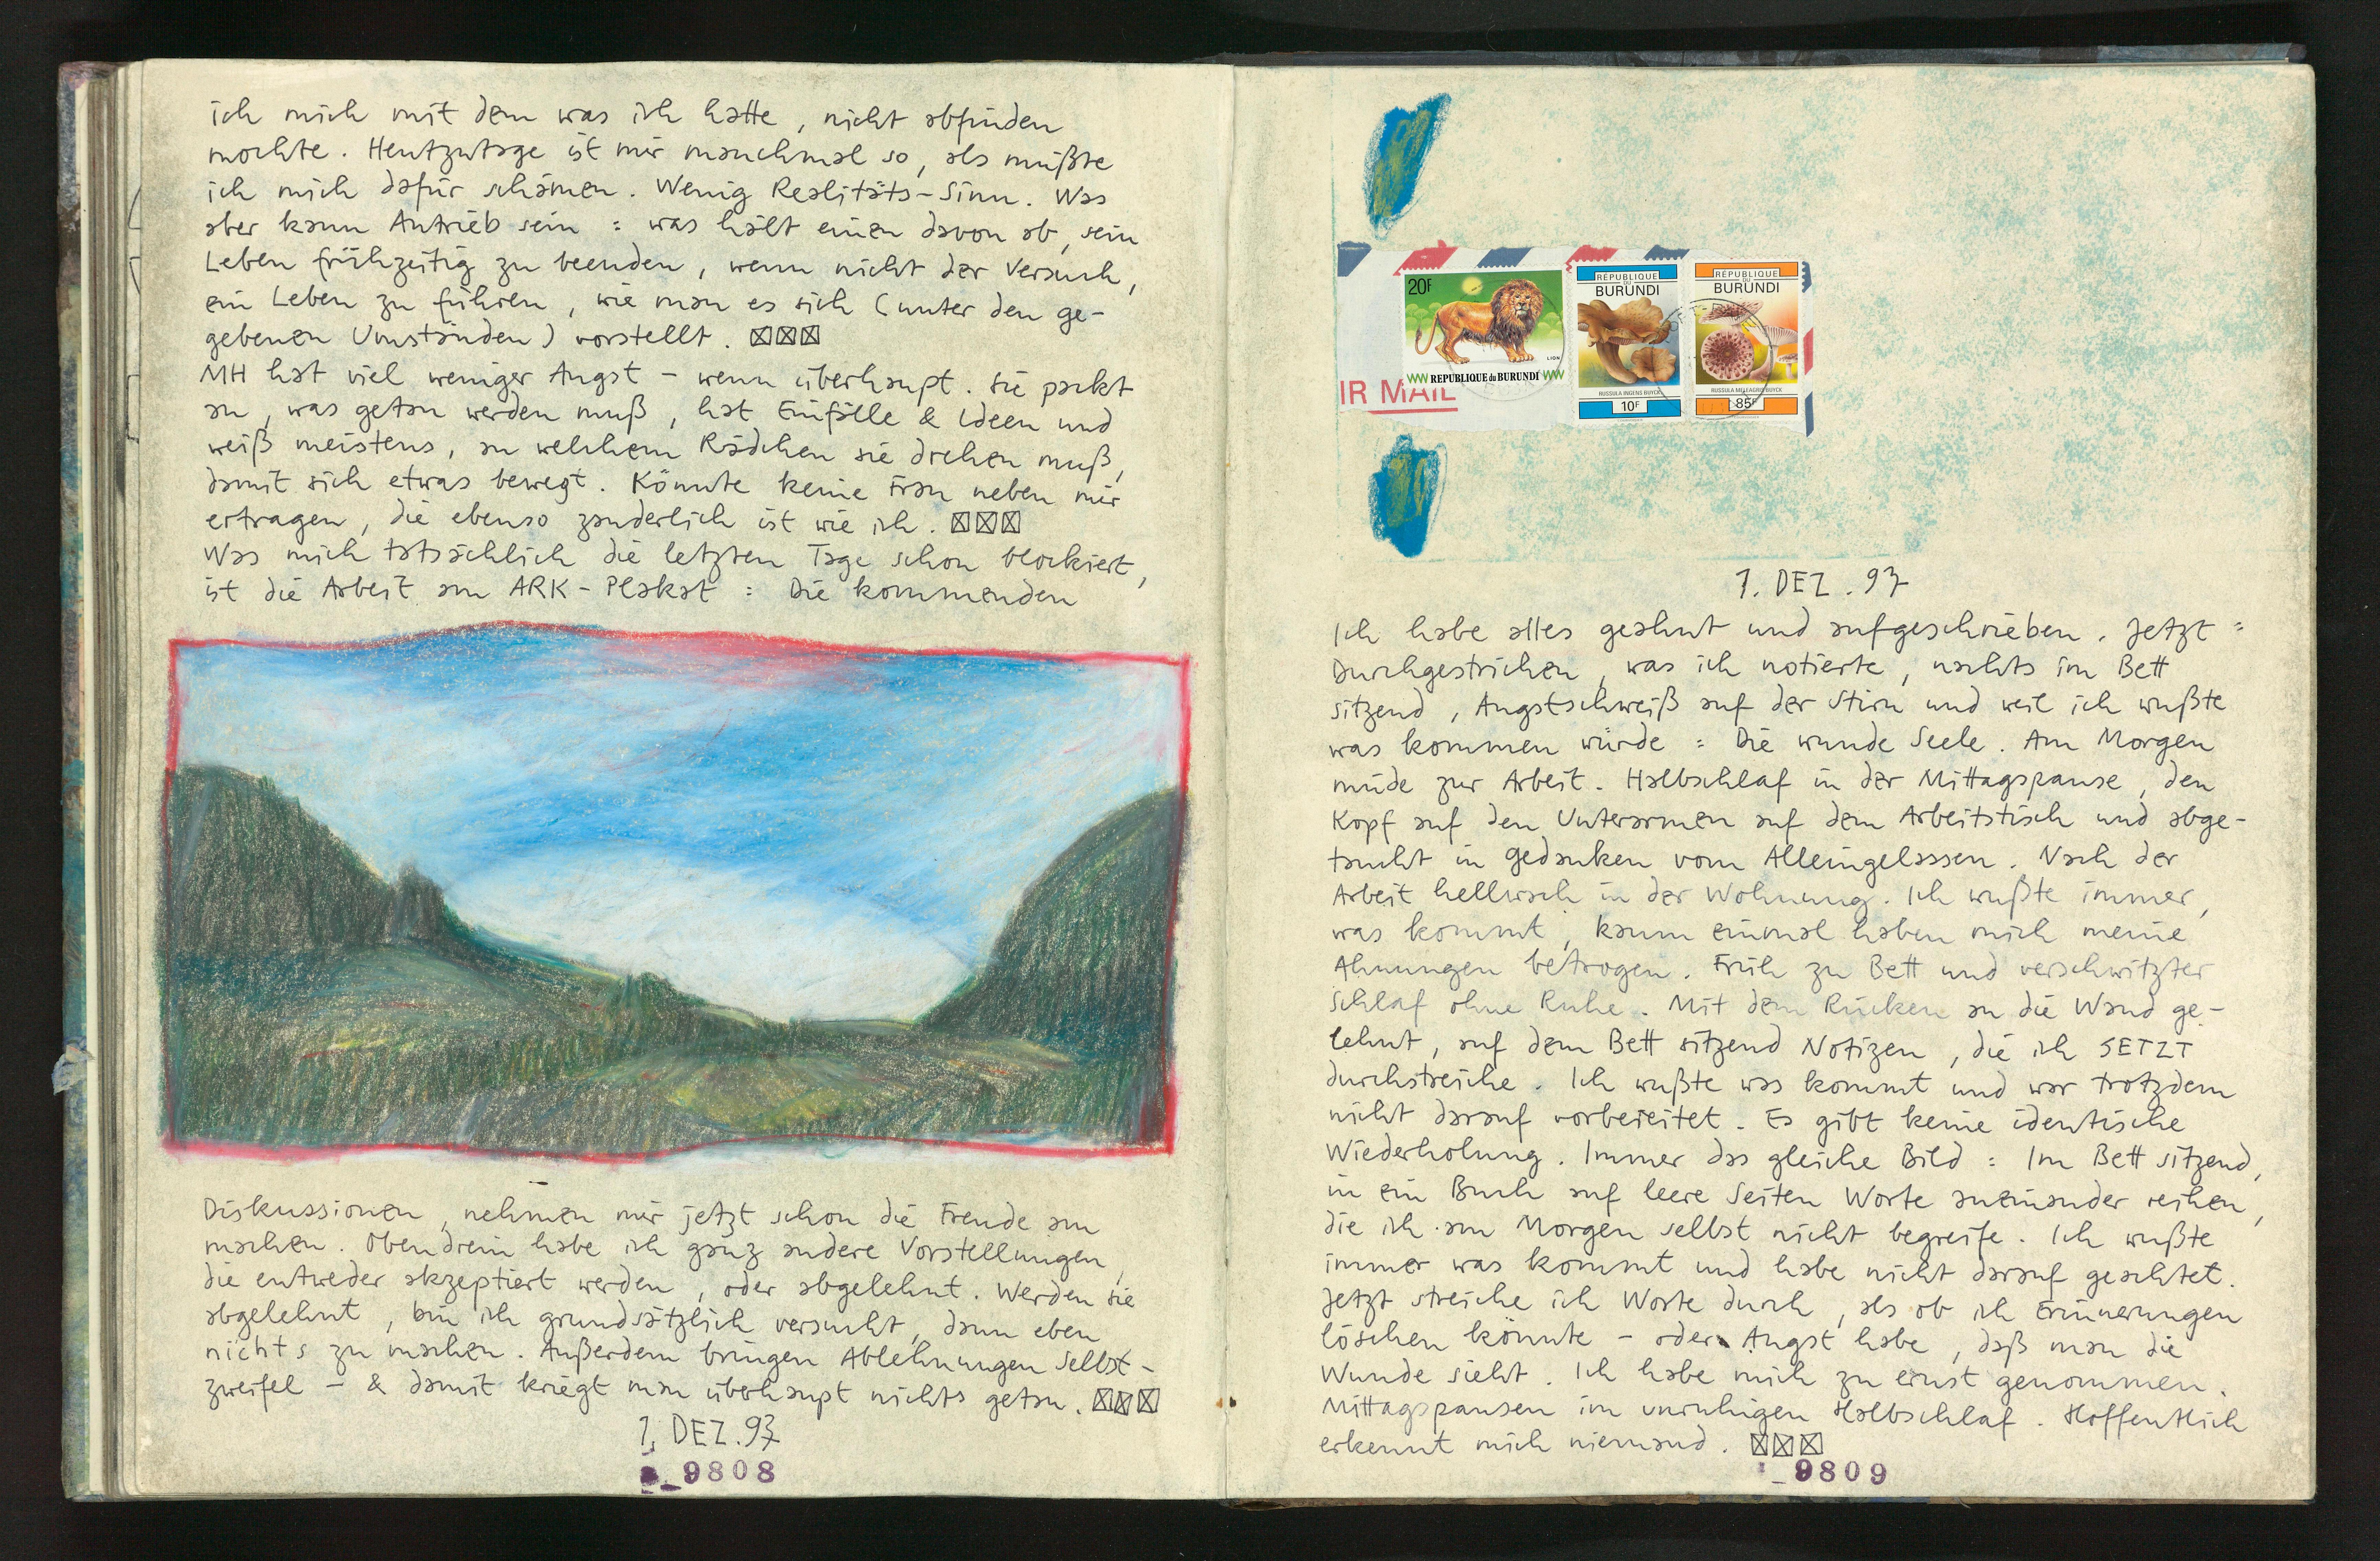 ich mich mit dem was ich hatte, nicht abfinden
mochte. Heutzutage ist mir manchmal so, als müßte
ich mich dafür schämen. Wenig Realitäts-Sinn. Was
aber kann Antrieb sein : was hält einen davon ab, sein
Leben frühzeitig zu beenden, wenn nicht der Versuch,
ein Leben zu führen, wie man es sich (unter den ge-
gebenen Umständen) vorstellt. ☒☒☒
MH hat viel weniger Angst – wenn überhaupt. Sie packt
an, was getan werden muß, hat Einfälle & Ideen und
weiß meistens, an welchem Rädchen sie drehen muß,
damit sich etwas bewegt. Könnte keine Frau neben mir
ertragen, die ebenso zauderlich ist wie ich. ☒☒☒
Was mich tatsächlich die letzten Tage schon blockiert,
ist die Arbeit am ARK-Plakat : Die kommenden
Diskussionen, nehmen mir jetzt schon die Freude am
machen. Obendrein habe ich ganz andere Vorstellungen,
die entweder akzeptiert werden, oder abgelehnt. Werden sie
abgelehnt, bin ich grundsätzlich versucht, dann eben
nichts zu machen. Außerdem bringen Ablehnungen Selbst-
zweifel – & damit kriegt man überhaupt nichts getan. ☒☒☒
1. DEZ. 93
9808
20F
LION
REPUBLIQUE du BURUNDI
IR MAIL
RÉPUBLIQUE
DU
BURUNDI
RUSSULA INGENS BUYCK
10F
RÉPUBLIQUE
DU
BURUNDI
RUSSULA MELEAGRIS BUYCK
85F
1. DEZ. 93
Ich habe alles geahnt und aufgeschrieben. Jetzt :
Durchgestrichen, was ich notierte, nachts im Bett
sitzend, Angstschweiß auf der Stirn und weil ich wußte
was kommen würde : Die wunde Seele. Am Morgen
müde zur Arbeit. Halbschlaf in der Mittagspause, den
Kopf auf den Unterarmen auf dem Arbeitstisch und abge-
taucht in Gedanken vom Alleingelassen. Nach der
Arbeit hellwach in der Wohnung. Ich wußte immer,
was kommt, kaum einmal haben mich meine
Ahnungen betrogen. Früh zu Bett und verschwitzter
Schlaf ohne Ruhe. Mit dem Rücken an die Wand ge-
lehnt, auf dem Bett sitzend Notizen, die ich JETZT
durchstreiche. Ich wußte was kommt und war trotzdem
nicht darauf vorbereitet. Es gibt keine identische
Wiederholung. Immer das gleiche Bild : Im Bett sitzend,
in ein Buch auf leere Seiten Worte aneinander reihen,
die ich am Morgen selbst nicht begreife. Ich wußte
immer was kommt und habe nicht darauf geachtet.
Jetzt streiche ich Worte durch, als ob ich Erinnerungen
löschen könnte – oder Angst habe, daß man die
Wunde sieht. Ich habe mich zu ernst genommen.
Mittagspausen im unruhigen Halbschlaf. Hoffentlich
erkennt mich niemand. ☒☒☒
9809